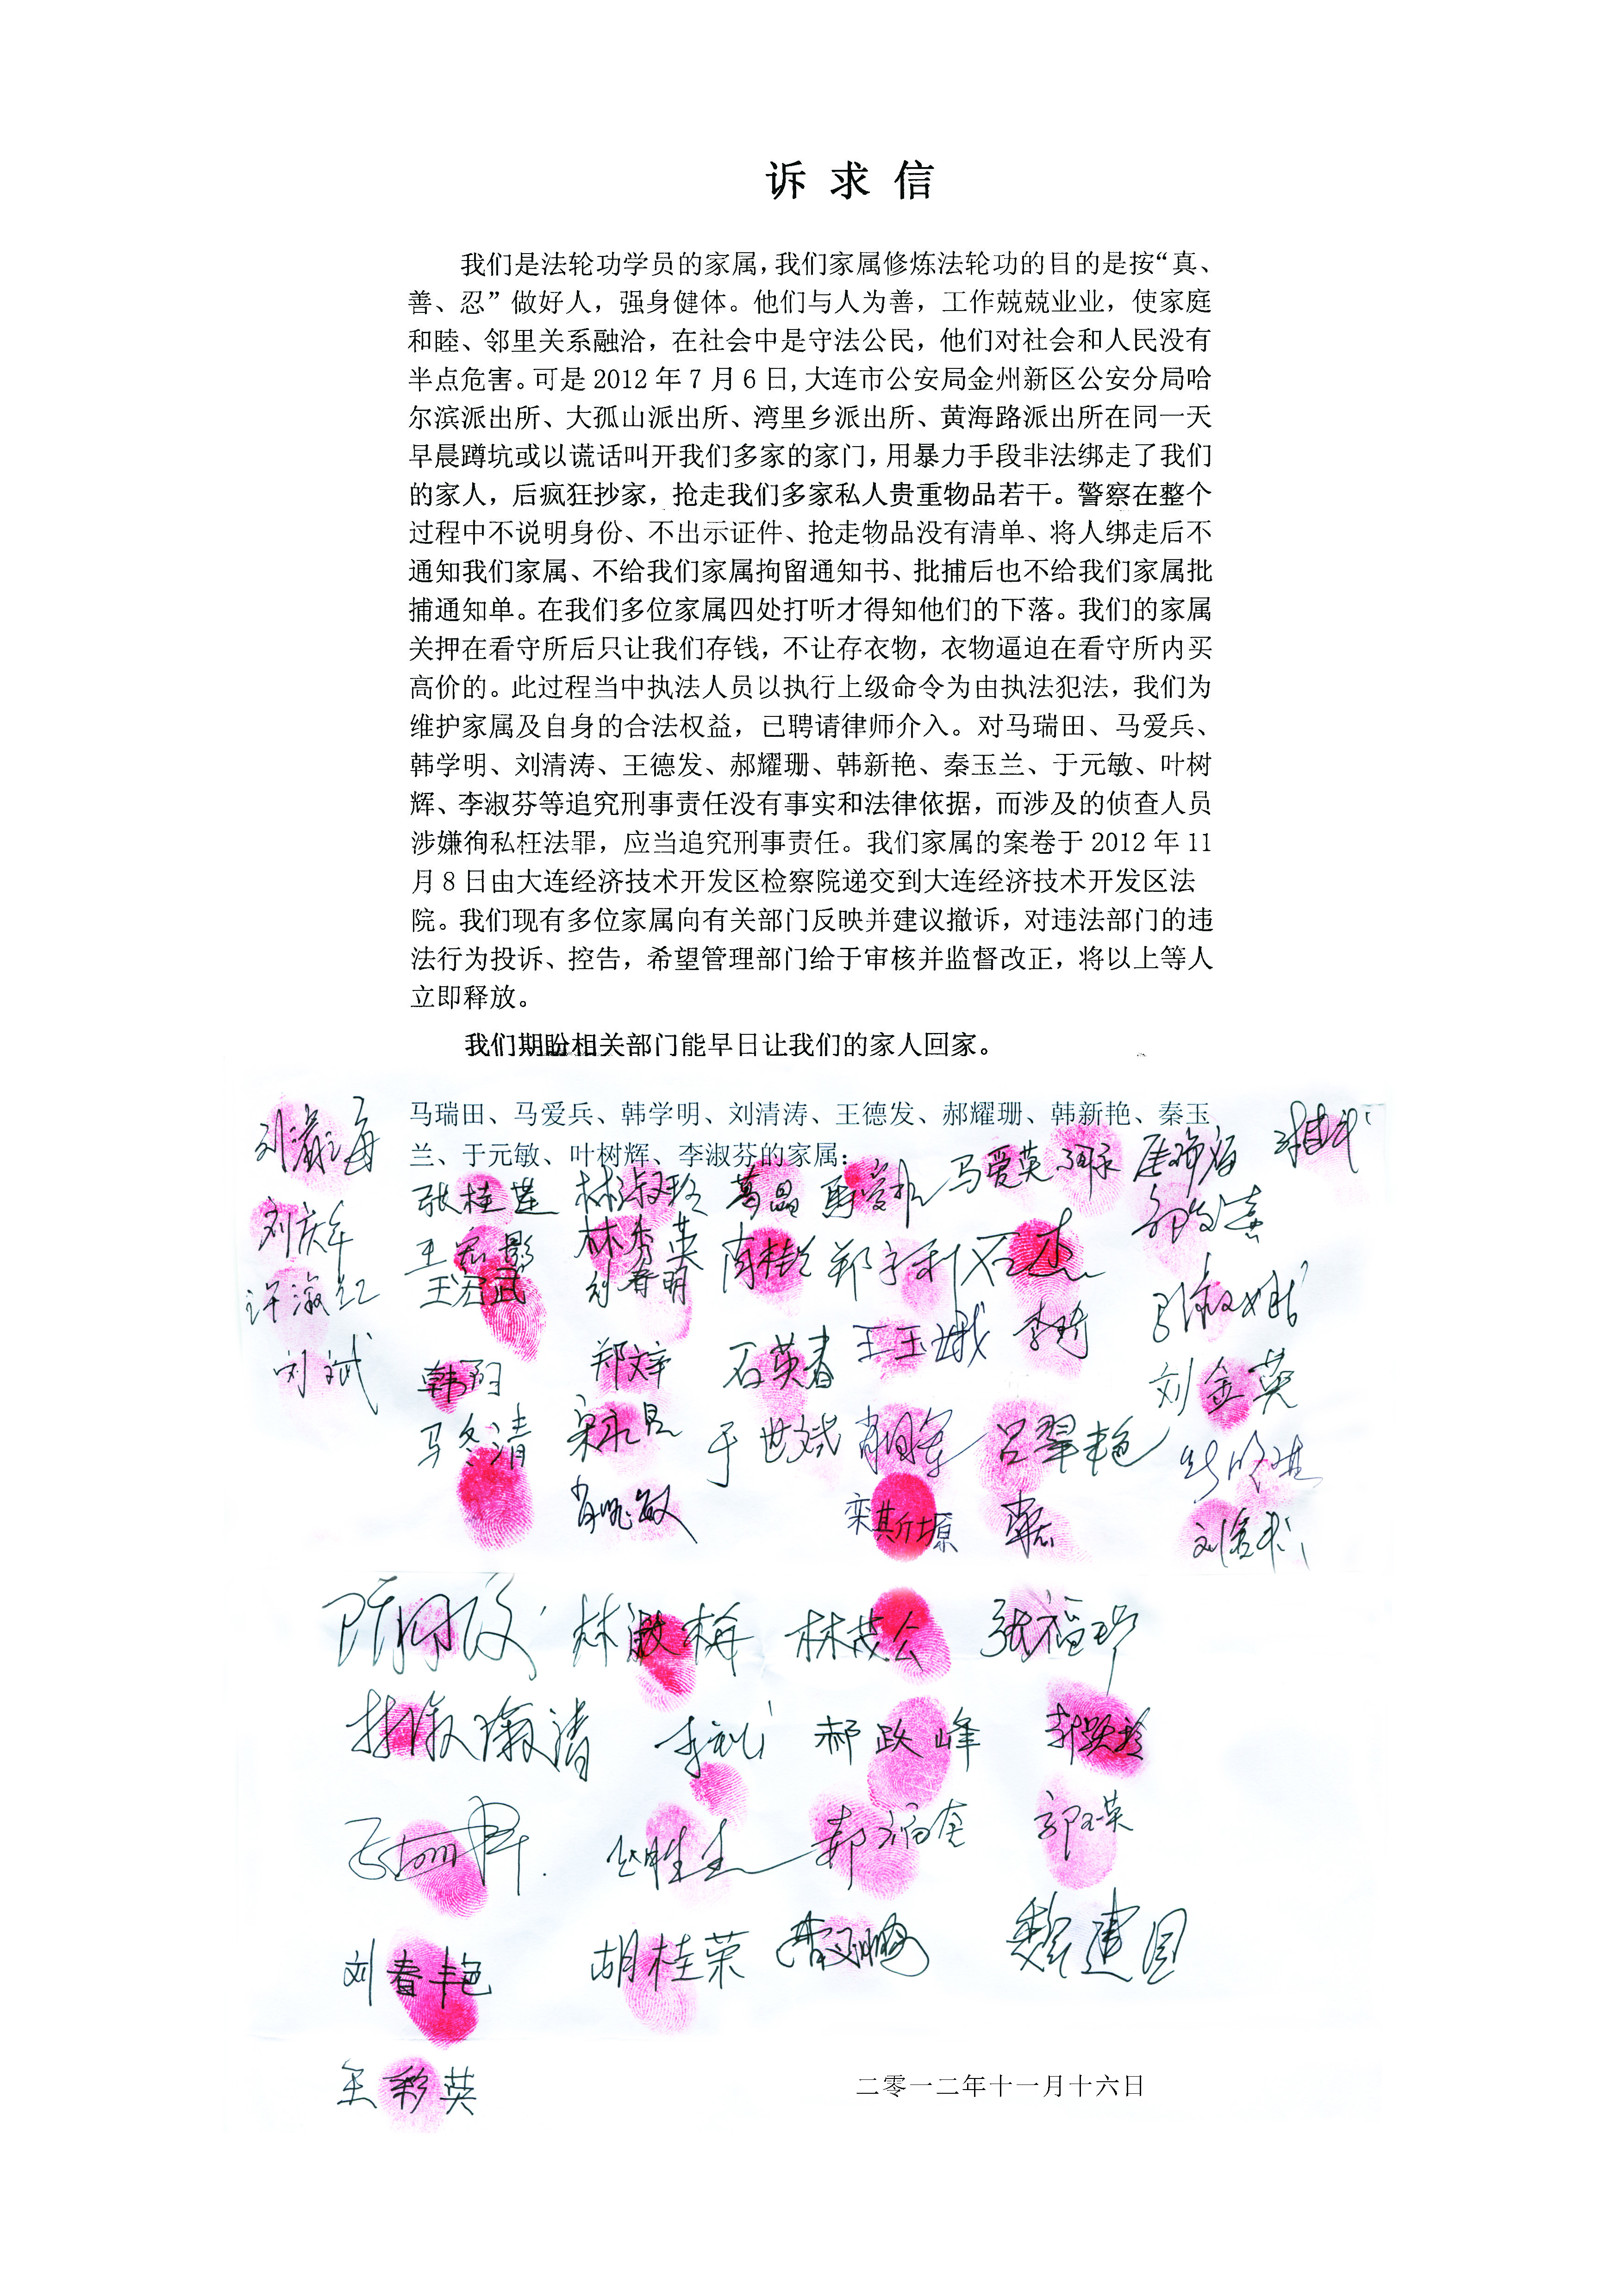 诉 求 信
我们是法轮功学员的家属，我们家属修炼法轮功的目的是按“真、
善、忍”做好人，强身健体。他们与人为善，工作兢兢业业，使家庭
和睦、邻里关系融洽，在社会中是守法公民，他们对社会和人民没有
半点危害。可是 2012 年 7 月 6 日，大连市公安局金州新区公安分局哈
尔滨派出所、大孤山派出所、湾里乡派出所、黄海路派出所在同一天
早晨蹲坑或以谎话叫开我们多家的家门，用暴力手段非法绑走了我们
的家人，后疯狂抄家，抢走我们多家私人贵重物品若干。警察在整个
过程中不说明身份、不出示证件、抢走物品没有清单、将人绑走后不
通知我们家属、不给我们家属拘留通知书、批捕后也不给我们家属批
捕通知单。在我们多位家属四处打听才得知他们的下落。我们的家属
关押在看守所后只让我们存钱，不让存衣物，衣物逼迫在看守所内买
高价的。此过程当中执法人员以执行上级命令为由执法犯法，我们为
维护家属及自身的合法权益，已聘请律师介入。对马瑞田、马爱兵、
韩学明、刘清涛、王德发、郝耀珊、韩新艳、秦玉兰、于元敏、叶树
辉、李淑芬等追究刑事责任没有事实和法律依据，而涉及的侦查人员
涉嫌徇私枉法罪，应当追究刑事责任。我们家属的案卷于 2012 年 11
月 8 日由大连经济技术开发区检察院递交到大连经济技术开发区法
院。我们现有多位家属向有关部门反映并建议撤诉，对违法部门的违
法行为投诉、控告，希望管理部门给于审核并监督改正，将以上等人
立即释放。
我们期盼相关部门能早日让我们的家人回家。
马瑞田、马爱兵、韩学明、刘清涛、王德发、郝耀珊、韩新艳、秦玉
兰、于元敏、叶树辉、李淑芬的家属：
张桂莲 林淑玲 葛晶 马爱英
刘庆年 林秀英 石杰
王宏武 刘春明
许淑红 王玉娥 李琦
刘斌 韩阳 郑文辛 石英春 刘金英
马冬清 于世斌 吕翠艳
栾其斯塬
林淑梅 林茂公 张福珍
郝政峰
郭玉英
刘春艳 胡桂荣 魏建国
王彩英
二零一二年十一月十六日